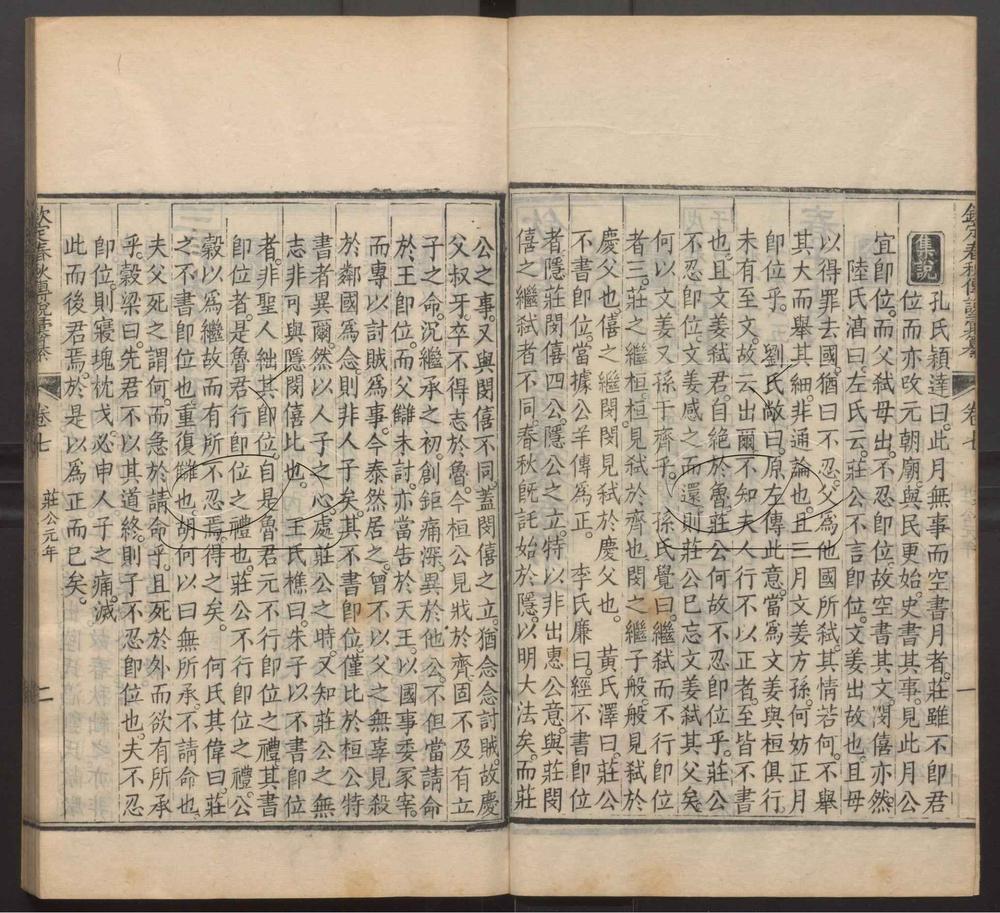 欽定春秋傳說彙纂 卷七 一
集說
孔氏穎達曰此月無事而空書月者莊雖不即君
位而亦改元朝廟與民更始史書其事見此月公
宜即位而父弒母出不忍即位故空書其文閔僖亦然
陸氏淳曰左氏云莊公不言即位文姜出故也且母
以得罪去國猶曰不忍父爲他國所弒其情若何不舉
其大而舉其細非通論也且三月文姜方孫何妨正月
即位乎 劉氏敞曰原左傳此意當爲文姜與桓俱行
而至有文故云出爾不知夫人行不以正者至皆不書
也且文姜弒君自絕於魯莊公何故不忍即位乎莊公
不忍即位文姜感之而還則莊公已忘文姜弒其父矣
何以文姜又孫于齊乎 孫氏覺曰繼弒而不行即位
者三莊之繼桓桓見弒於齊也閔之繼子般般見弒於
慶父也僖之繼閔閔見弒於慶父也 黃氏澤曰莊公
不書即位當據公羊傳爲正 李氏廉曰經不書即位
者隱莊閔僖四公隱公之立特以非出惠公意與莊閔
僖之繼弒者不同春秋旣託始於隱以明大法矣而莊
公之事又與閔僖不同蓋閔僖之立猶念念討賊故慶
父叔牙卒不得志於魯今桓公見戕於齊固不及有立
子之命況繼承之初創鉅痛深異於他公不但當請命
於王即位而父讎未討亦當告於天王以國事委冢宰
而專以討賊爲事今泰然居之曾不以父之無辜見殺
於鄰國爲念則非人子矣其不書即位僅比於桓公特
書者異爾然以人子之心處莊公之時又知莊公之無
志非可與隱閔僖比也 王氏樵曰朱子以不書即位
者非聖人絀其即位自是魯君元不行即位之禮其書
即位者是魯君行即位之禮也莊公不行即位之禮公
穀以爲繼故而有所不忍焉得之矣 何氏其偉曰莊
之不書即位也重復讎也胡何以曰無所承不請命也
夫父死之謂何而急於請命乎且死於外而欲有所承
乎穀梁曰先君不以其道終則子不忍即位也夫不忍
即位則寢塊枕戈必申人子之痛滅
此而後君焉於是以爲正而已矣
欽定春秋傳說彙纂 卷七 莊公元年 二